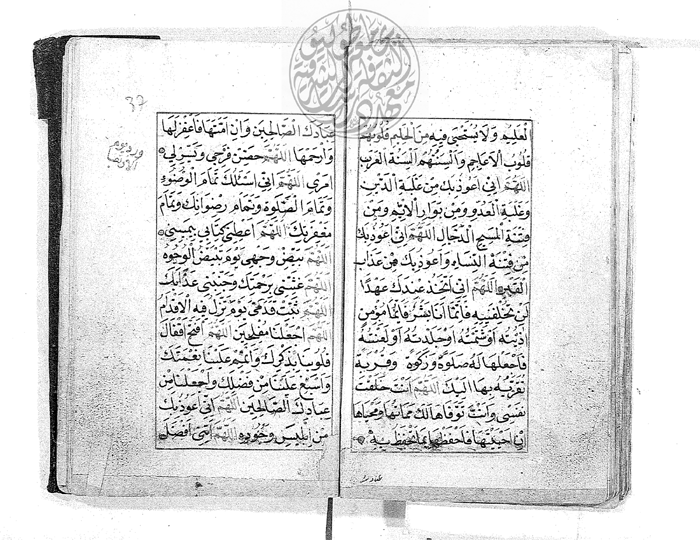 العليم ولا يستحيى فيه من الحليم قلوبهم
قلوب الاعاجم والسنتهم السنة العرب
اللهم انى اعوذ بك من غلبة الدين
وغلبة العدو ومن بوار الايم ومن
فتنة المسيح الدجال اللهم انى اعوذ بك
من فتنة النساء واعوذ بك من عذاب
القبر اللهم انى اتخذ عندك عهدا
لن تخلفنيه فانما انا بشر فايما مؤمن
اذيته او شتمته او جلدته او لعنته
فاجعلها له صلوة وزكوة وقربة
تقربه بها اليك اللهم انت خلقت
نفسى وانت توفاها لك مماتها ومحياها
ان احييتها فاحفظها بما تحفظ به
عبادك
37
عبادك الصالحين وان امتها فاغفر لها
وارحمها اللهم حصن فرجى ويسر لى
امرى اللهم انى اسئلك تمام الوضوء
وتمام الصلوة وتمام رضوانك وتمام
مغفرتك اللهم اعطنى كتابى بيمينى
اللهم بيض وجهى يوم تبيض الوجوه
اللهم غشنى برحمتك وجنبنى عذابك
اللهم ثبت قدمى يوم تزل فيه الاقدام
اللهم اجعلنا مفلحين اللهم افتح اقفال
قلوبنا بذكرك واتمم علينا نعمتك
واسبغ علينا من فضلك واجعلنا من
عبادك الصالحين اللهم انى اعوذ بك
من ابليس وجنوده اللهم اتنى افضل